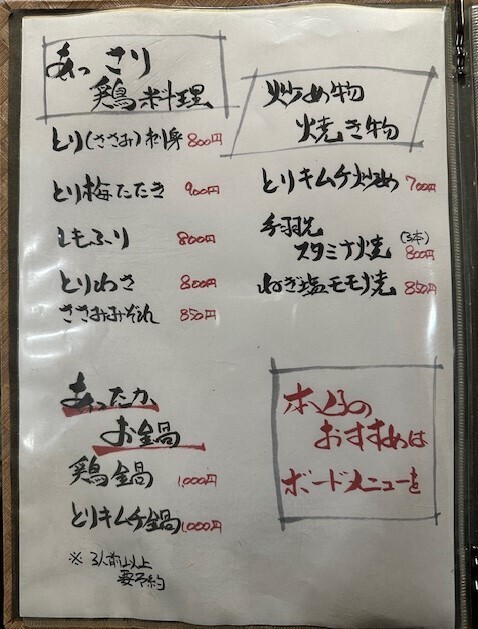 あっさり
鶏料理
とり(ささみ)刺身 800円
とり梅たたき 900円
しもふり 800円
とりわさ 800円
ささみみぞれ 850円
炒め物
焼き物
とりキムチ炒め 700円
手羽先
スタミナ焼 (3本) 800円
ねぎ塩モモ焼 850円
あったか
お鍋
鶏鍋 1,000円
とりキムチ鍋 1,000円
※ 3人前以上
要予約
本日の
おすすめは
ボードメニューを